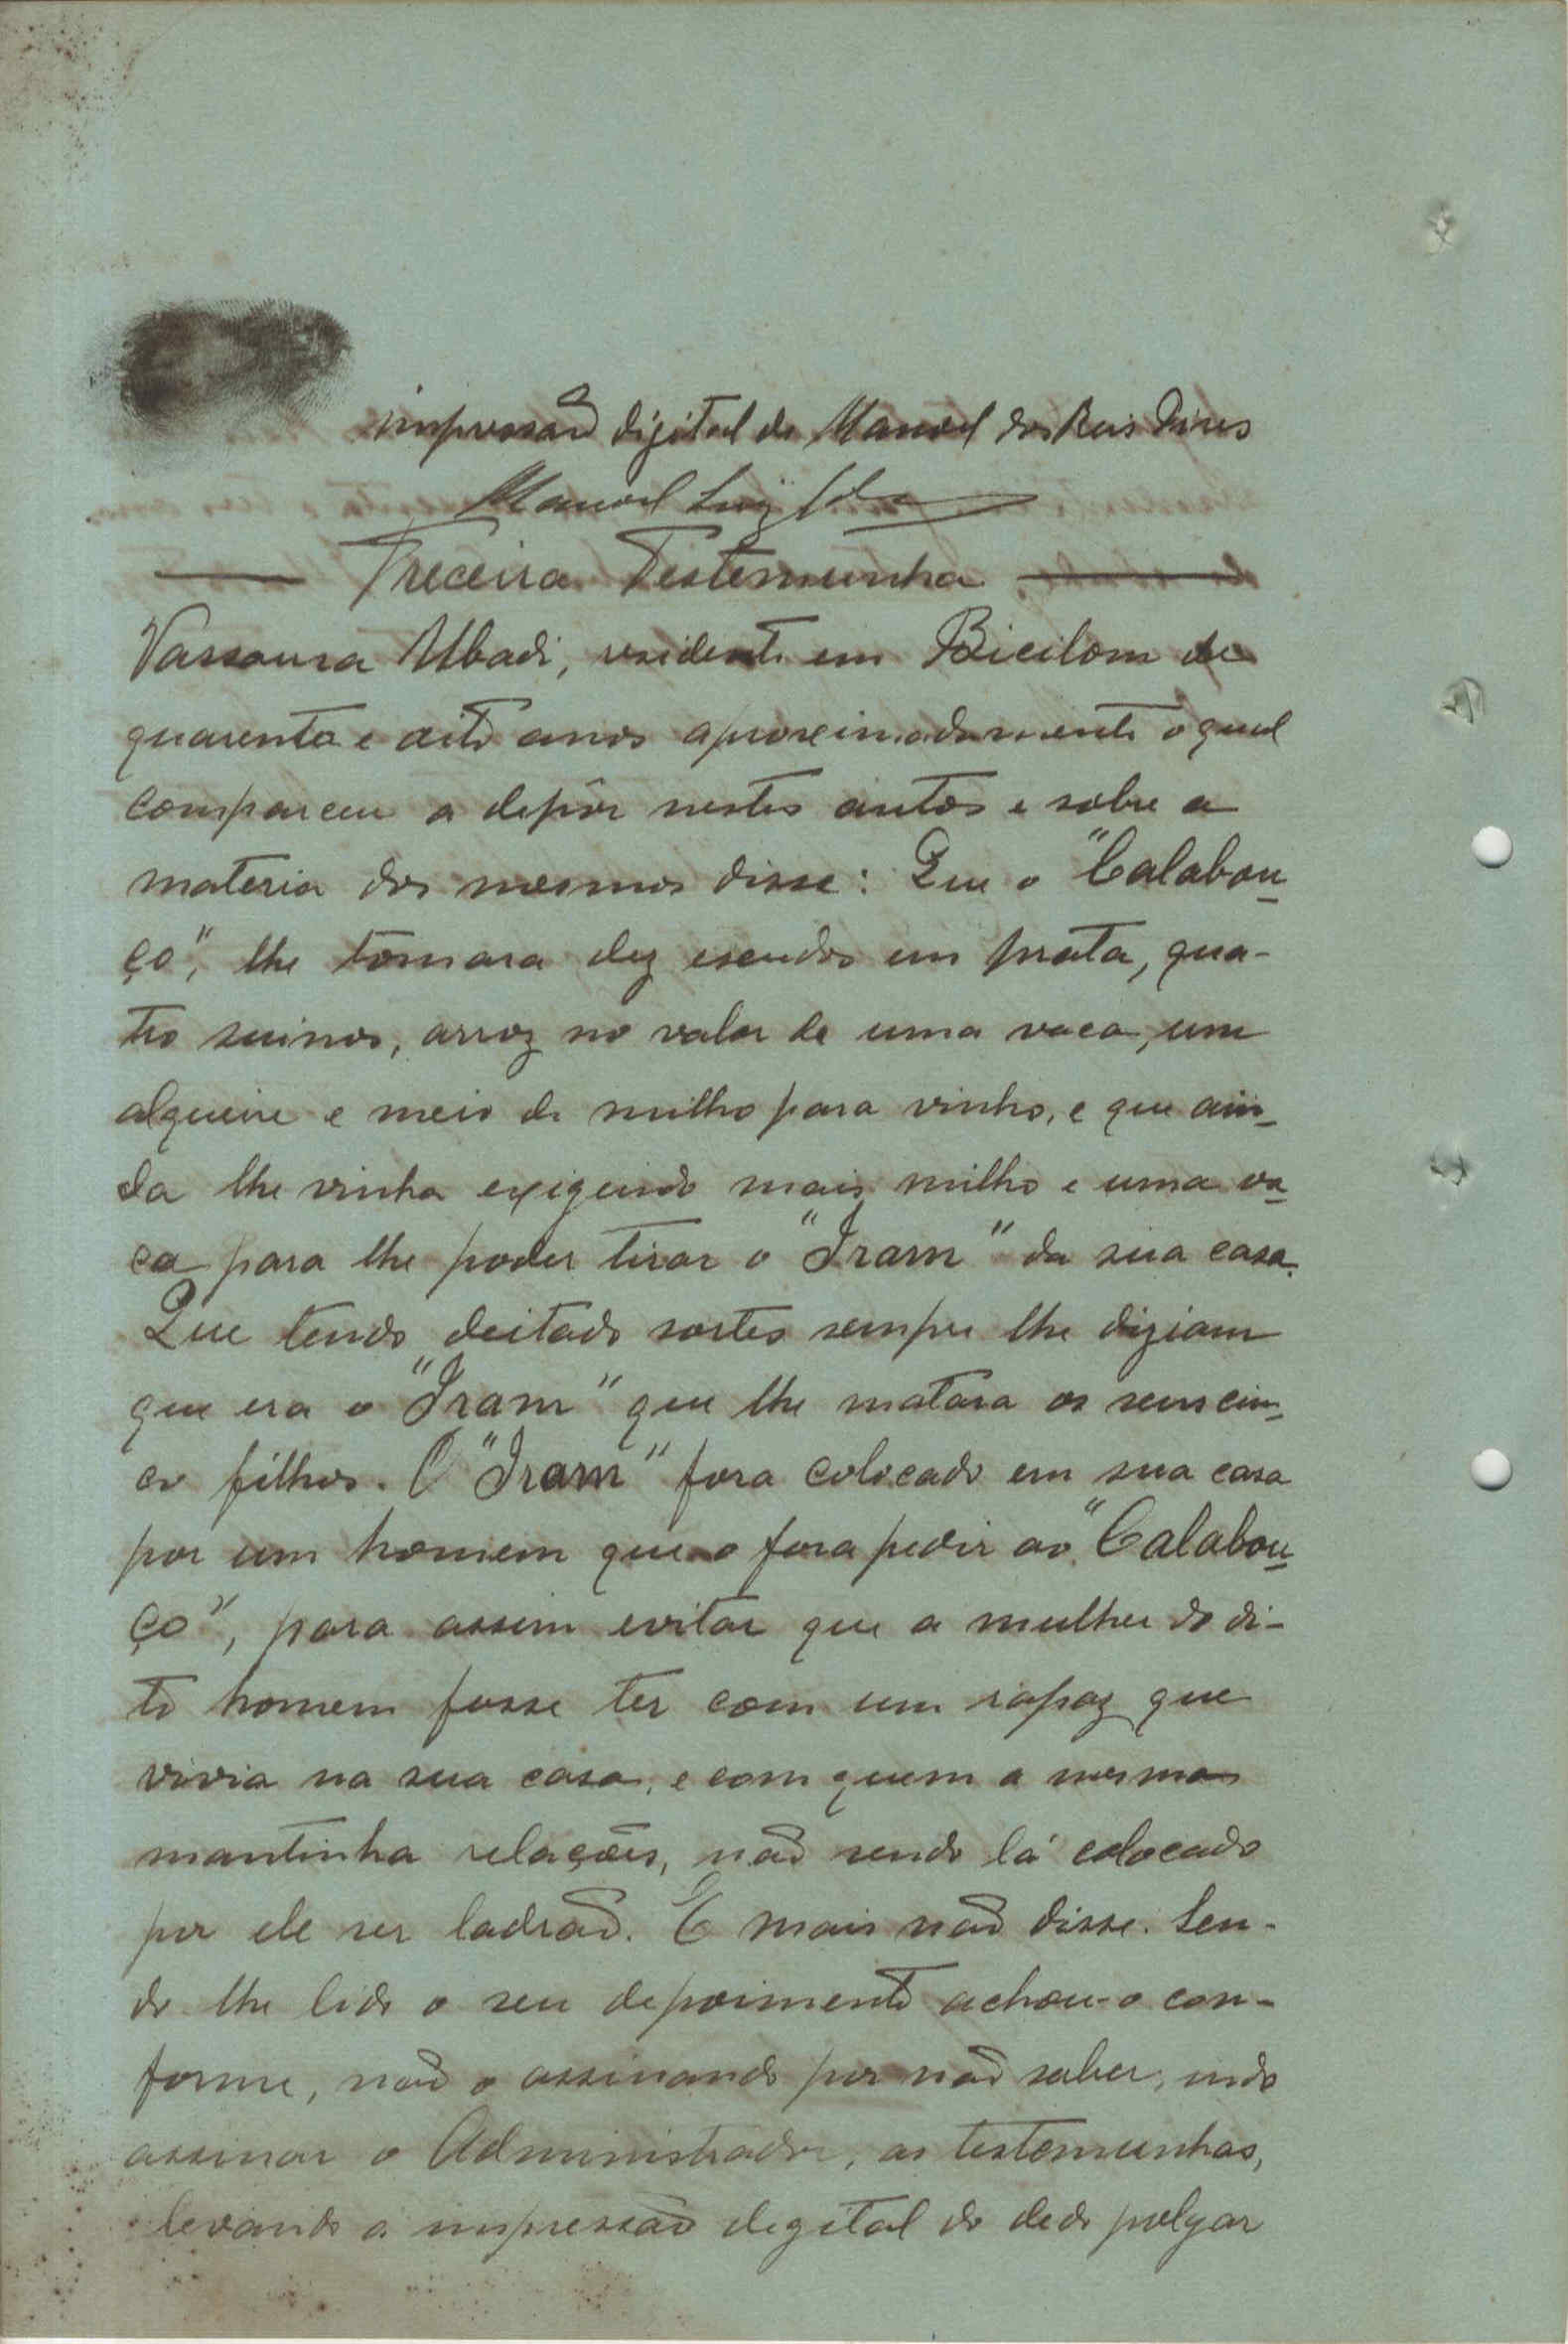 impressão digital de Manoel dos Reis Pires
Manoel Luiz
Treceira Testemunha
Vassoura Mbadi, residente em Bicilom de
quarenta e oito anos aproximadamente o qual
compareceu a depôr nestes autos e sobre a
materia dos mesmos disse: Que o "Calabou
ço", lhe tomara dez escudos em prata, qua-
tro suinos, arroz no valor de uma vaca, um
alqueire e meio de milho para vinho, e que ain-
da lhe vinha exigindo mais milho e uma va
ca para lhe poder tirar o "Iram" da sua casa.
Que tendo deitado sortes sempre lhe diziam
que era o "Iram" que lhe matara os seus cin-
co filhos. O "Iram" fora colocado em sua casa
por um homem que o fora pedir ao "Calabou
ço", para assim evitar que a mulher do di-
to homem fosse ter com um rapaz que
vivia na sua casa, e com quem a mesma
mantinha relações, não sendo lá colocado
por ele ser ladrão. E mais não disse. Sen-
do lhe lido o seu depoimento achou-o con-
forme, não o assinando por não saber, indo
assinar o Administrador, as testemunhas,
levando a impressão degital do dedo polgar